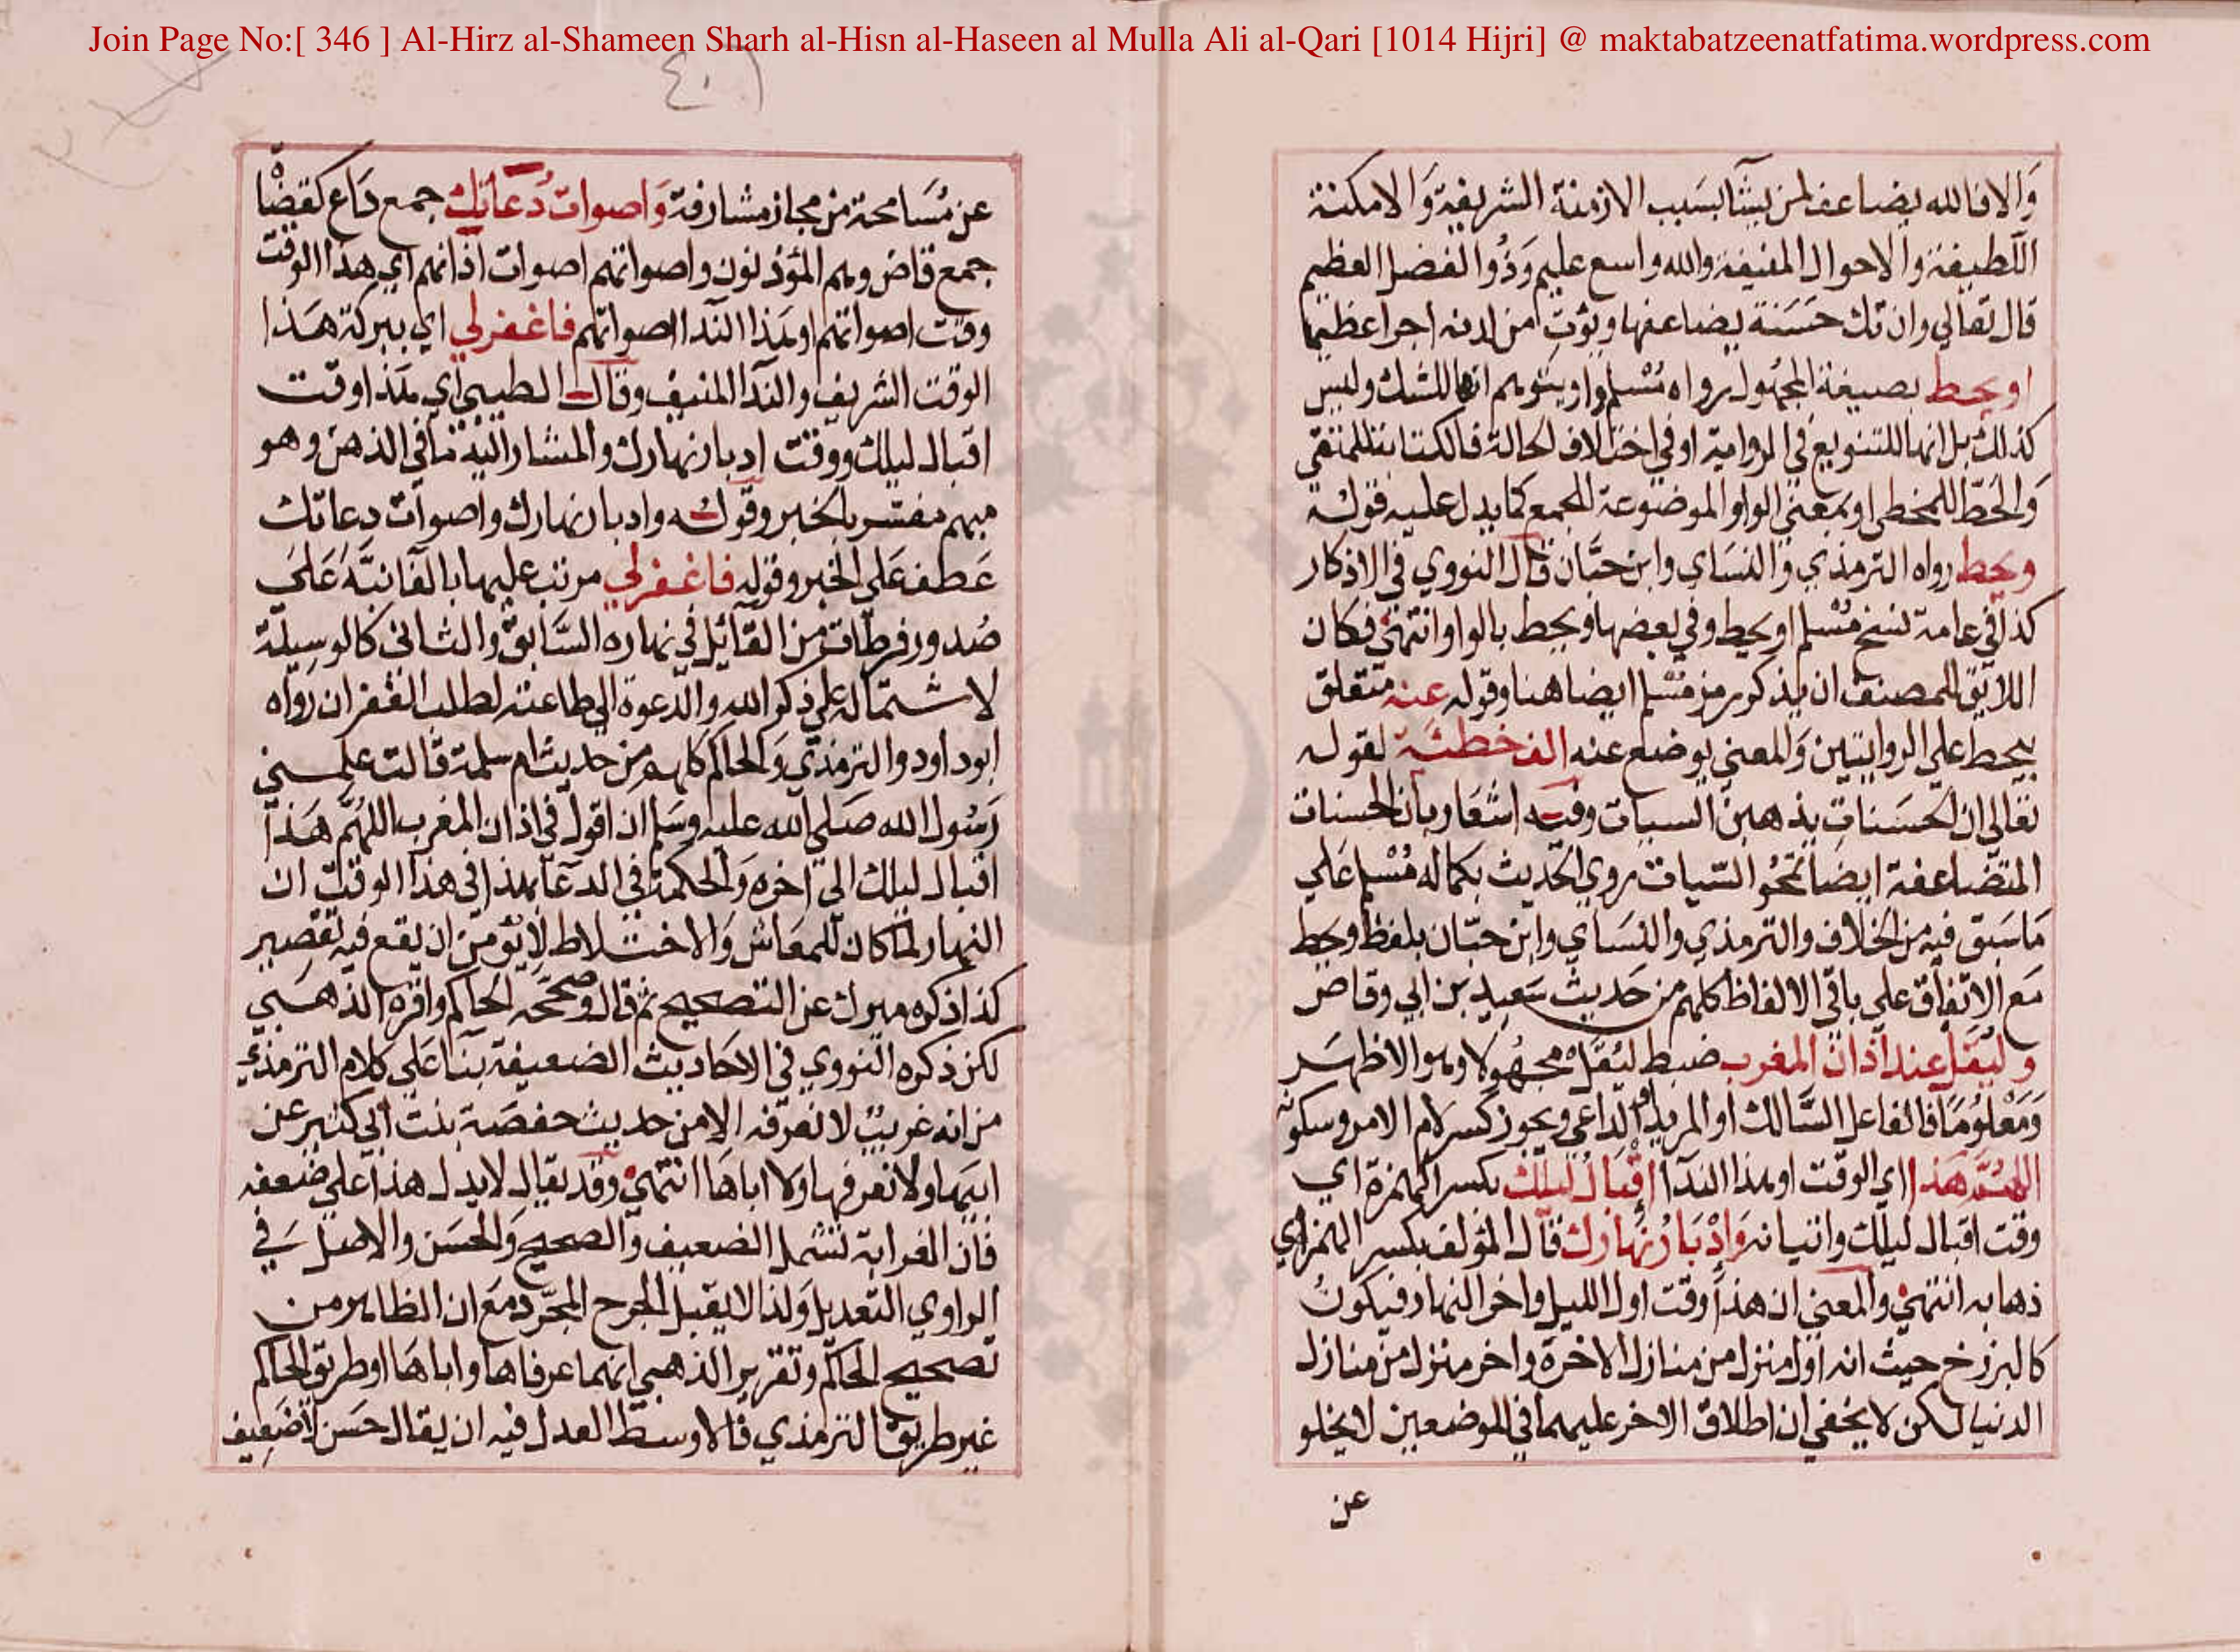 Join Page No:[ 346 ] Al-Hirz al-Shameen Sharh al-Hisn al-Haseen al Mulla Ali al-Qari [1014 Hijri] @ maktabatzeenatfatima.wordpress.com
٤٠٦
وَالا فالله يضاعف لمن يشآ بسبب الازمنة الشريفة وَالامكنة
اللطيفة والاحوال المنيفة والله واسع عليم وَذُو الفضل العظيم
قال تعالي وان تك حَسَنة يضاعفها ويؤتِ من لدنه اجرا عظيما
او يحط بصيغة المجهول رواه مُسْلم واو يتوهم انها للشك وليس
كذلك بل انها للتنويع في الرواية او في اختلاف الحالة فالكتابة للمتقي
وَالحَطّ للمخطي او بمعني الواو الموضوعة للجمع كما يدل عليه قوله
ويحط رواه الترمذي وَالنسَاي وابن حبَّان قال النووي في الاذكار
كذا في عامة نسخ مُسْلم او يحط وفي بعضها ويحط بالواو انتهي فكان
اللايق للمصنف ان يذكر رمز مُسْلم ايضا هنا وقوله عنه متعلق
بيحط علي الروايتين وَالمعني يوضع عنه الف خطئة لقوله
تعالي ان الحسَنات يذهبن السيات وفيه اشعار بان الحسنات
المتضاعفة ايضا تمحُو السّيات روي الحديث بكماله مُسْلم عَلي
مَا سَبق فيه من الخلاف والترمذي والنسَاي وابن حبّان بلفظ ويحط
مَع الاتفاق علي باقي الالفاظ كلهم من حَديث سَعيد بن ابي وقاص
وليَقل عند اذان المغرب ضبط ليُقَلْ مجهُولا وهو الاظهَر
وَمَعْلوُمَا فالفاعل السَّالك او المريد او الداعي ويجوز كسر لام الامر وسكونه
اللهُمّ هَذا اي الوقت او هذا الندآ اِقْبَالُ لَيْلك بكسر الهمزة اي
وقت اقبال ليلك واتيانه وَاِدْبَارُ نهَارك قال المؤلف بكسر الهمزة اي
ذهابه انتهي والمعني ان هذا وقت اول الليل واخر النهار فيكونُ
كالبرزخ حيث انه اول منزل من منازل الاخرة واخر منزل من منازل
الدنيا لكن لا يخفي ان اطلاق الاخر عليهما في الموضعين لا يخلو
عن
عن مُسَامحة من مجاز مشارفة وَاصوات دُعَاتك جمع دَاع كقضاة
جمع قاض وهم المؤذنون واصواتهم اصوات اذانهم اي هذا الوقت
وقت اصواتهم او هذا الندا اصواتهم فاغفرلي اي ببركة هَذا
الوقت الشريف والندآ المنيف وقال الطيبي اي هذا وقت
اقبال ليلك ووقت ادبار نهارك والمشار اليه ما في الذهن وهو
مبهم مفسّر بالخبر وقوله وادبار نهارك واصوات دعاتك
عَطف عَلي الخبر وقوله فاغفرلي مرتب عليها بالفا نبَّه عَلي
صُدور فرطات من القائل في نهاره السَّابق والثاني كالوسيلة
لاشتماله علي ذكر الله والدعوة الي طاعته لطلب الغفران رواه
ابو داود والترمذي وَالحاكم كلهم من حديث ام سلمة قالت علمني
رَسُول الله صَلي الله عليه وسَلم ان اقول في اذان المغرب اللهُمَّ هَذا
اقبال ليلك الي اخره وَالحكمة في الدعآ بهذا في هذا الوقت ان
النهار لما كان للمعَاش وَالاختلاط لا يؤمن ان يقع فيه تقصير
كذا ذكره ميرك عن التصحيح ثم قال وَصَحَّحه الحاكم واقره الذهَبي
لكن ذكره النووي في الاحَاديث الضعيفة بنآ عَلي كلام الترمذي
من انه غريبٌ لا نعرفه الا من حديث حفصَة بنت ابي كثير عن
ابيهَا ولا نعرفها ولا اباهَا انتهي وقد يقال لا يدل هذا علي ضعفه
فان الغرابة تشمل الضعيف وَالصحيح وَالحسَن والاصل في
الراوي التعديل وَلذا لا يقبل الجرح المجرّد مَع ان الظاهر من
تصحيح الحاكم وتقرير الذهبي انهما عرفاها واباهَا او طريق الحاكم
غير طريق الترمذي فالاوسط العدل فيه ان يقال حَسَن لا ضَعِيف